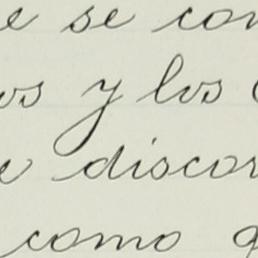 e se con
os y los
e discor
como q